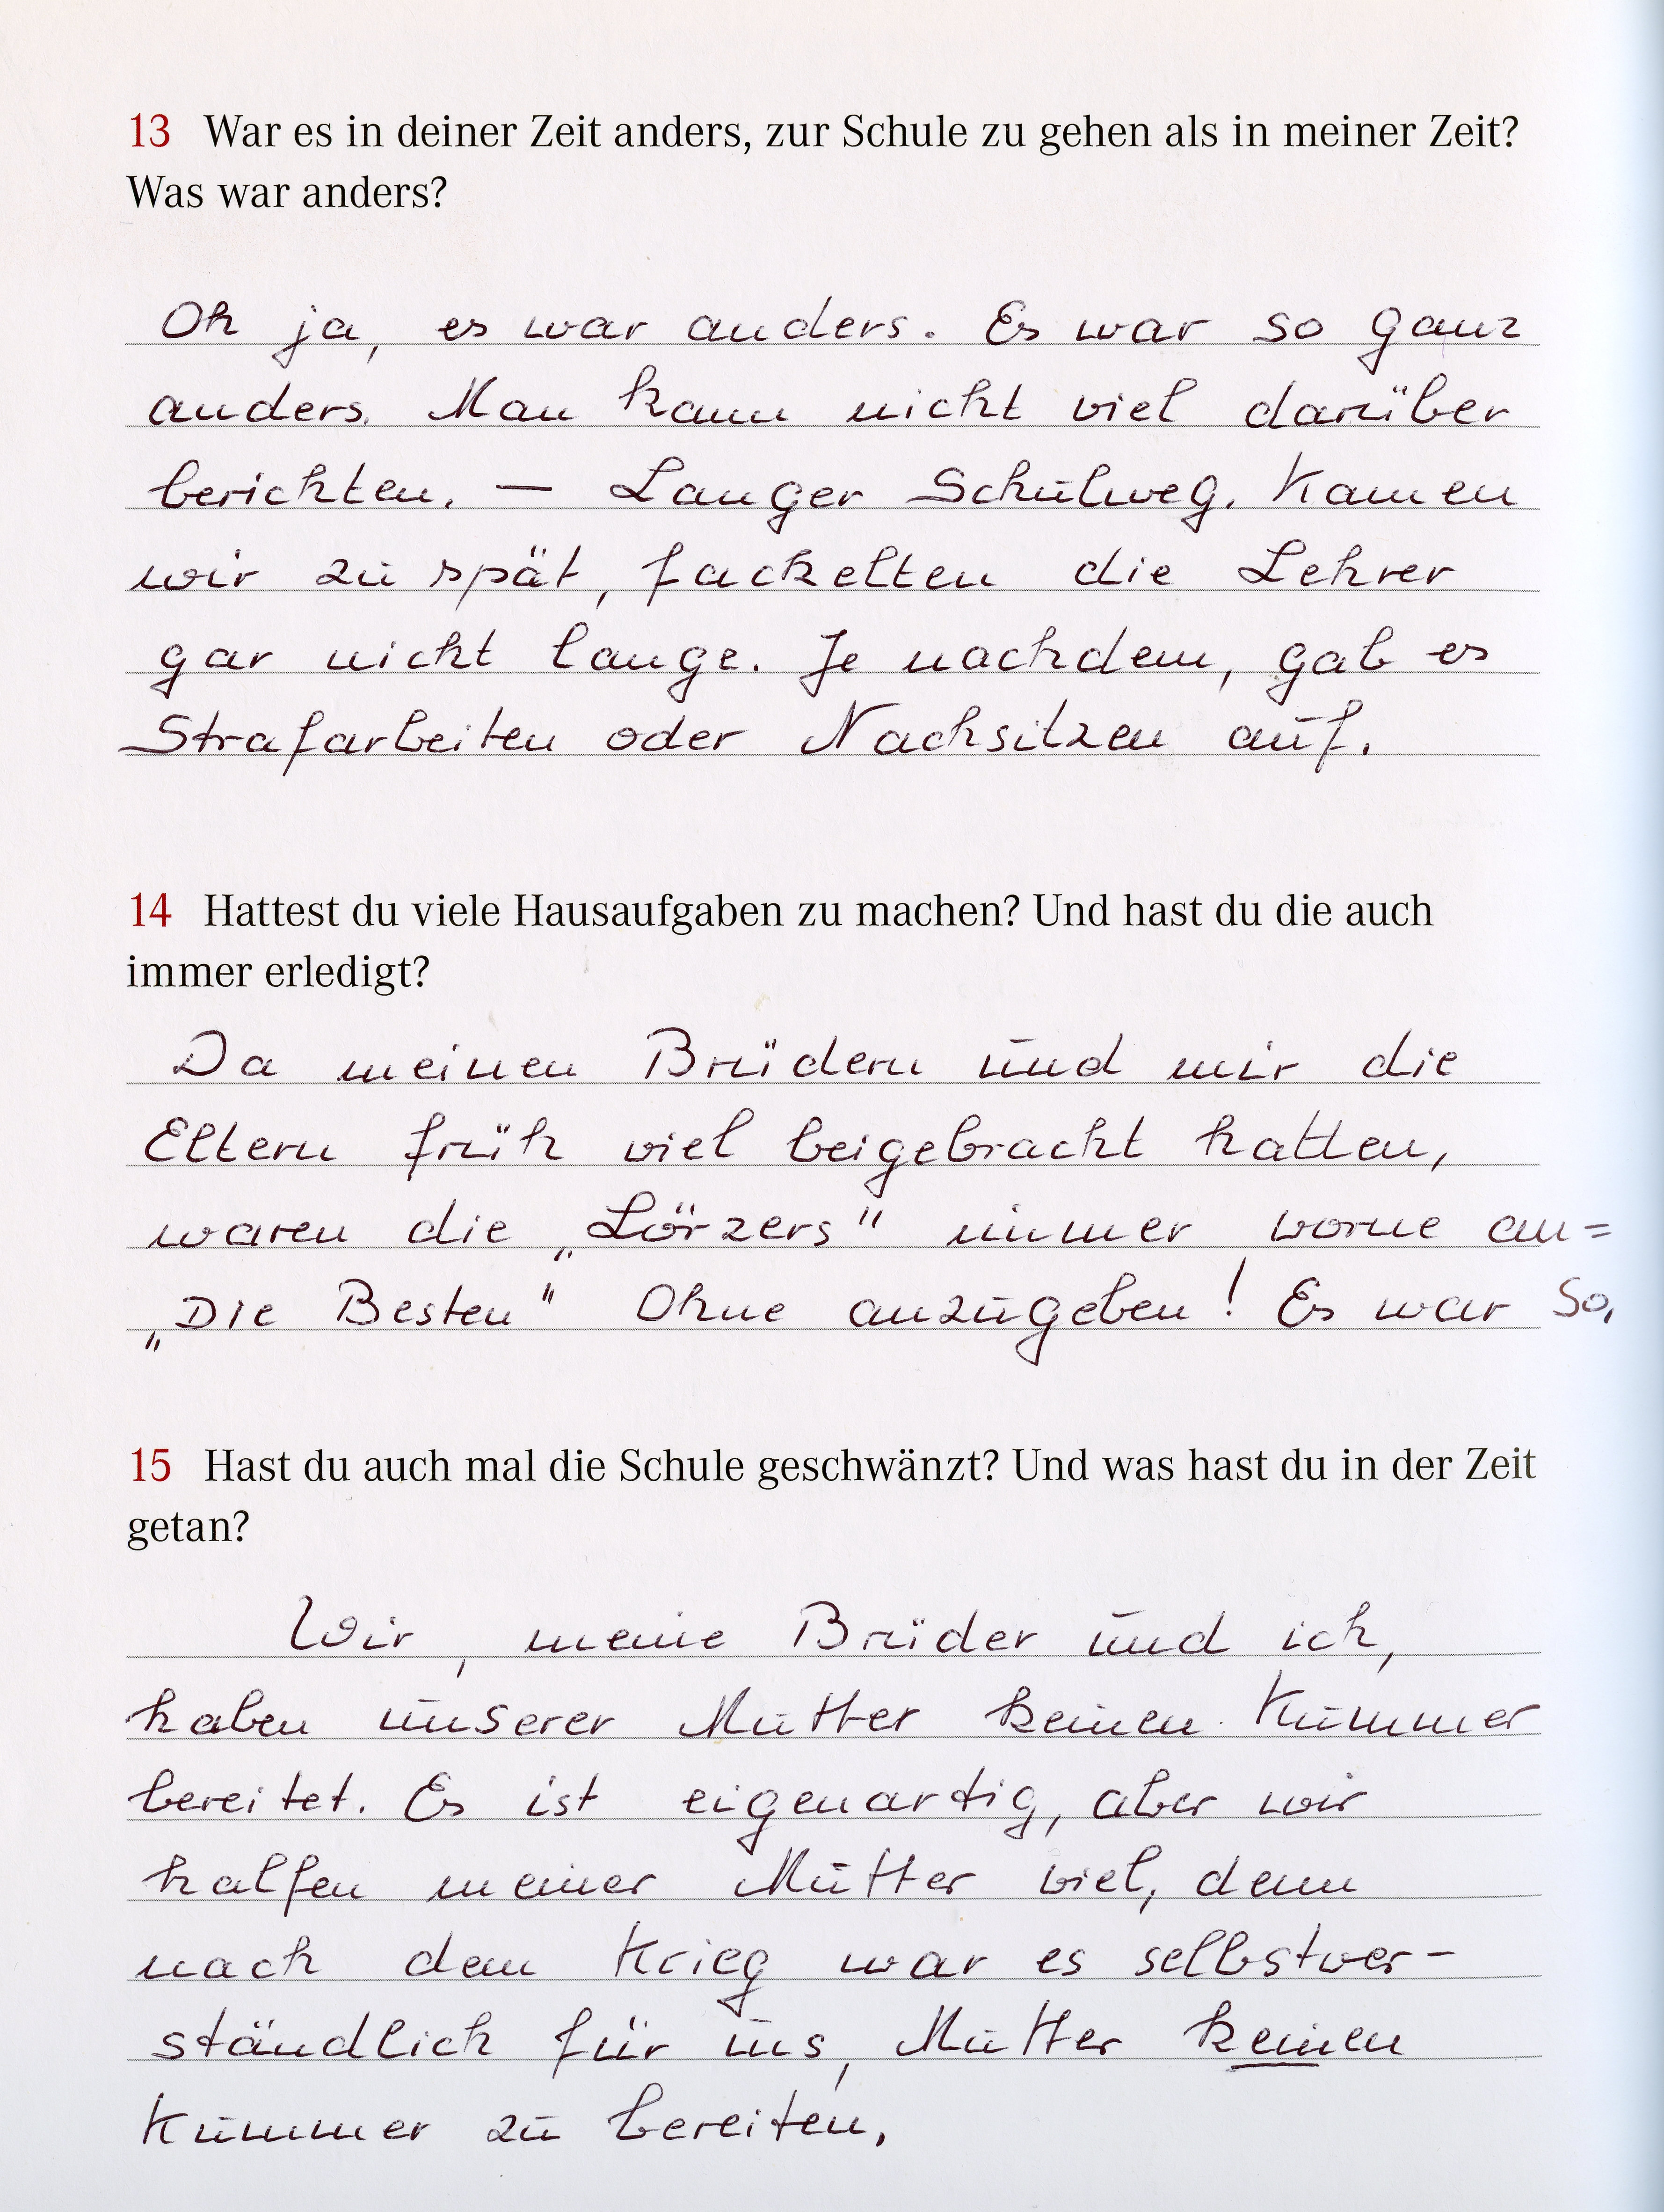 13 War es in deiner Zeit anders, zur Schule zu gehen als in meiner Zeit?
Was war anders?
Oh ja, es war anders. Es war so ganz
anders. Man kann nicht viel darüber
berichten. — Langer Schulweg. Kamen
wir zu spät, fackelten die Lehrer
gar nicht lange. Je nachdem, gab es
Strafarbeiten oder Nachsitzen auf.
14 Hattest du viele Hausaufgaben zu machen? Und hast du die auch
immer erledigt?
Da meinen Brüdern und mir die
Eltern früh viel beigebracht hatten,
waren die „Lörzers" immer vorne an =
„Die Besten" Ohne anzugeben! Es war so,
15 Hast du auch mal die Schule geschwänzt? Und was hast du in der Zeit
getan?
Wir, meine Brüder und ich,
haben unserer Mutter keinen Kummer
bereitet. Es ist eigenartig, aber wir
halfen meiner Mutter viel, denn
nach dem Krieg war es selbstver-
ständlich für uns, Mutter keinen
Kummer zu bereiten.